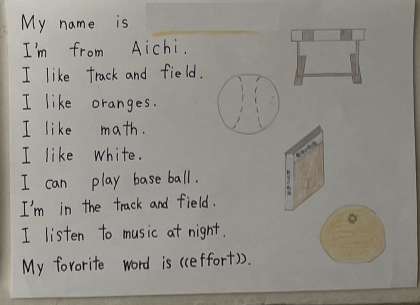 My name is
I'm from Aichi.
I like track and field.
I like oranges.
I like math.
I like white.
I can play base ball.
I'm in the track and field.
I listen to music at night.
My fororite word is ((effort)).